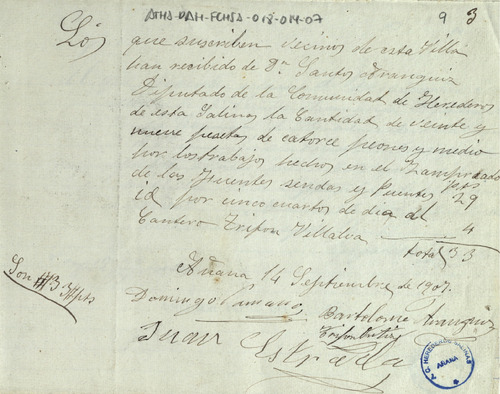 ATHA-DAH-FCHSA-018-014-07
9 3
Los que suscriben vecinos de esta Villa
han recibido de Dn Santos Aranguiz
Diputado de la Comunidad de Herederos
de esta Salinas la Cantidad de veinte y
nueve pesetas de catorce peones y medio
por los trabajos hechos en el
de las Fuentes sendas y Puentes 29
id por cinco cuartos de dia del
Cantero Trifon Villalva 4
total 33
Son 33 pts
Añana 14 Septiembre de 1907.
Domingo
Bartolome Aranguiz
Trifon
Juan Estrada
C. G. HEREDEROS SALINAS
AÑANA